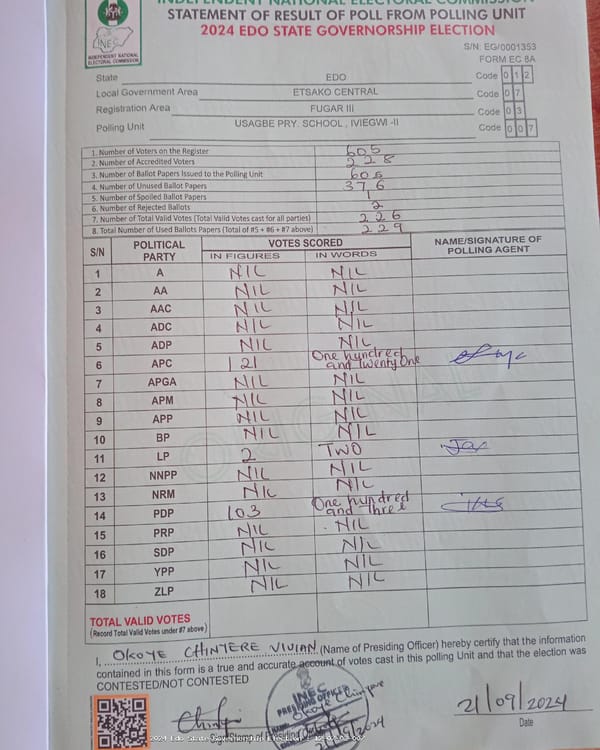 INDEPENDENT NATIONAL ELECTORAL COMMISSION
STATEMENT OF RESULT OF POLL FROM POLLING UNIT
2024 EDO STATE GOVERNORSHIP ELECTION
INEC
INDEPENDENT NATIONAL
ELECTORAL COMMISSION
S/N: EG/0001353
FORM EC 8A
State EDO Code 0 1 2
Local Government Area ETSAKO CENTRAL Code 0 7
Registration Area FUGAR III Code 0 3
Polling Unit USAGBE PRY. SCHOOL , IVIEGWI -II Code 0 0 7
1. Number of Voters on the Register 605
2. Number of Accredited Voters 228
3. Number of Ballot Papers Issued to the Polling Unit 605
4. Number of Unused Ballot Papers 376
5. Number of Spoiled Ballot Papers 1
6. Number of Rejected Ballots 2
7. Number of Total Valid Votes (Total Valid Votes cast for all parties) 226
8. Total Number of Used Ballots Papers (Total of #5 + #6 + #7 above) 229
S/N POLITICAL PARTY VOTES SCORED NAME/SIGNATURE OF POLLING AGENT
IN FIGURES IN WORDS
1 A NIL NIL
2 AA NIL NIL
3 AAC NIL NIL
4 ADC NIL NIL
5 ADP NIL NIL
6 APC 121 One hundred and twenty one
7 APGA NIL NIL
8 APM NIL NIL
9 APP NIL NIL
10 BP NIL NIL
11 LP 2 TWO
12 NNPP NIL NIL
13 NRM NIL NIL
14 PDP 103 One hundred and three
15 PRP NIL NIL
16 SDP NIL NIL
17 YPP NIL NIL
18 ZLP NIL NIL
TOTAL VALID VOTES
(Record Total Valid Votes under #7 above)
I, OKOYE CHINYERE VIVIAN (Name of Presiding Officer) hereby certify that the information
contained in this form is a true and accurate account of votes cast in this polling Unit and that the election was
CONTESTED/NOT CONTESTED
INEC
PRESIDING OFFICER
Okoye Chinyere
21/09/2024
Date
2024 Edo State Governorship Election